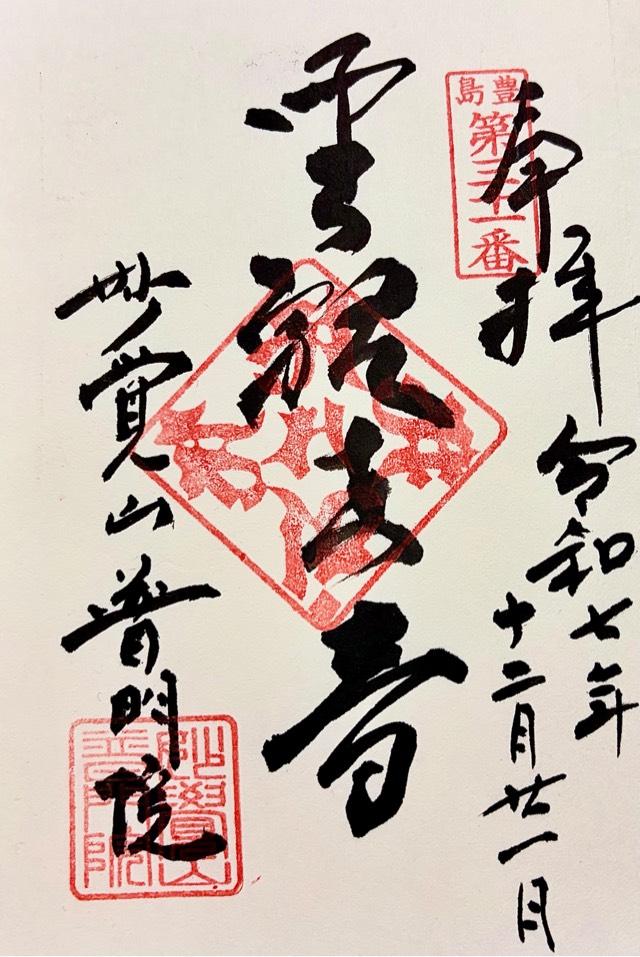 奉拝
豊島
第三十一番
令和七年
十二月廿一日
聖観世音
妙覚山普門院
妙覺山
普門院